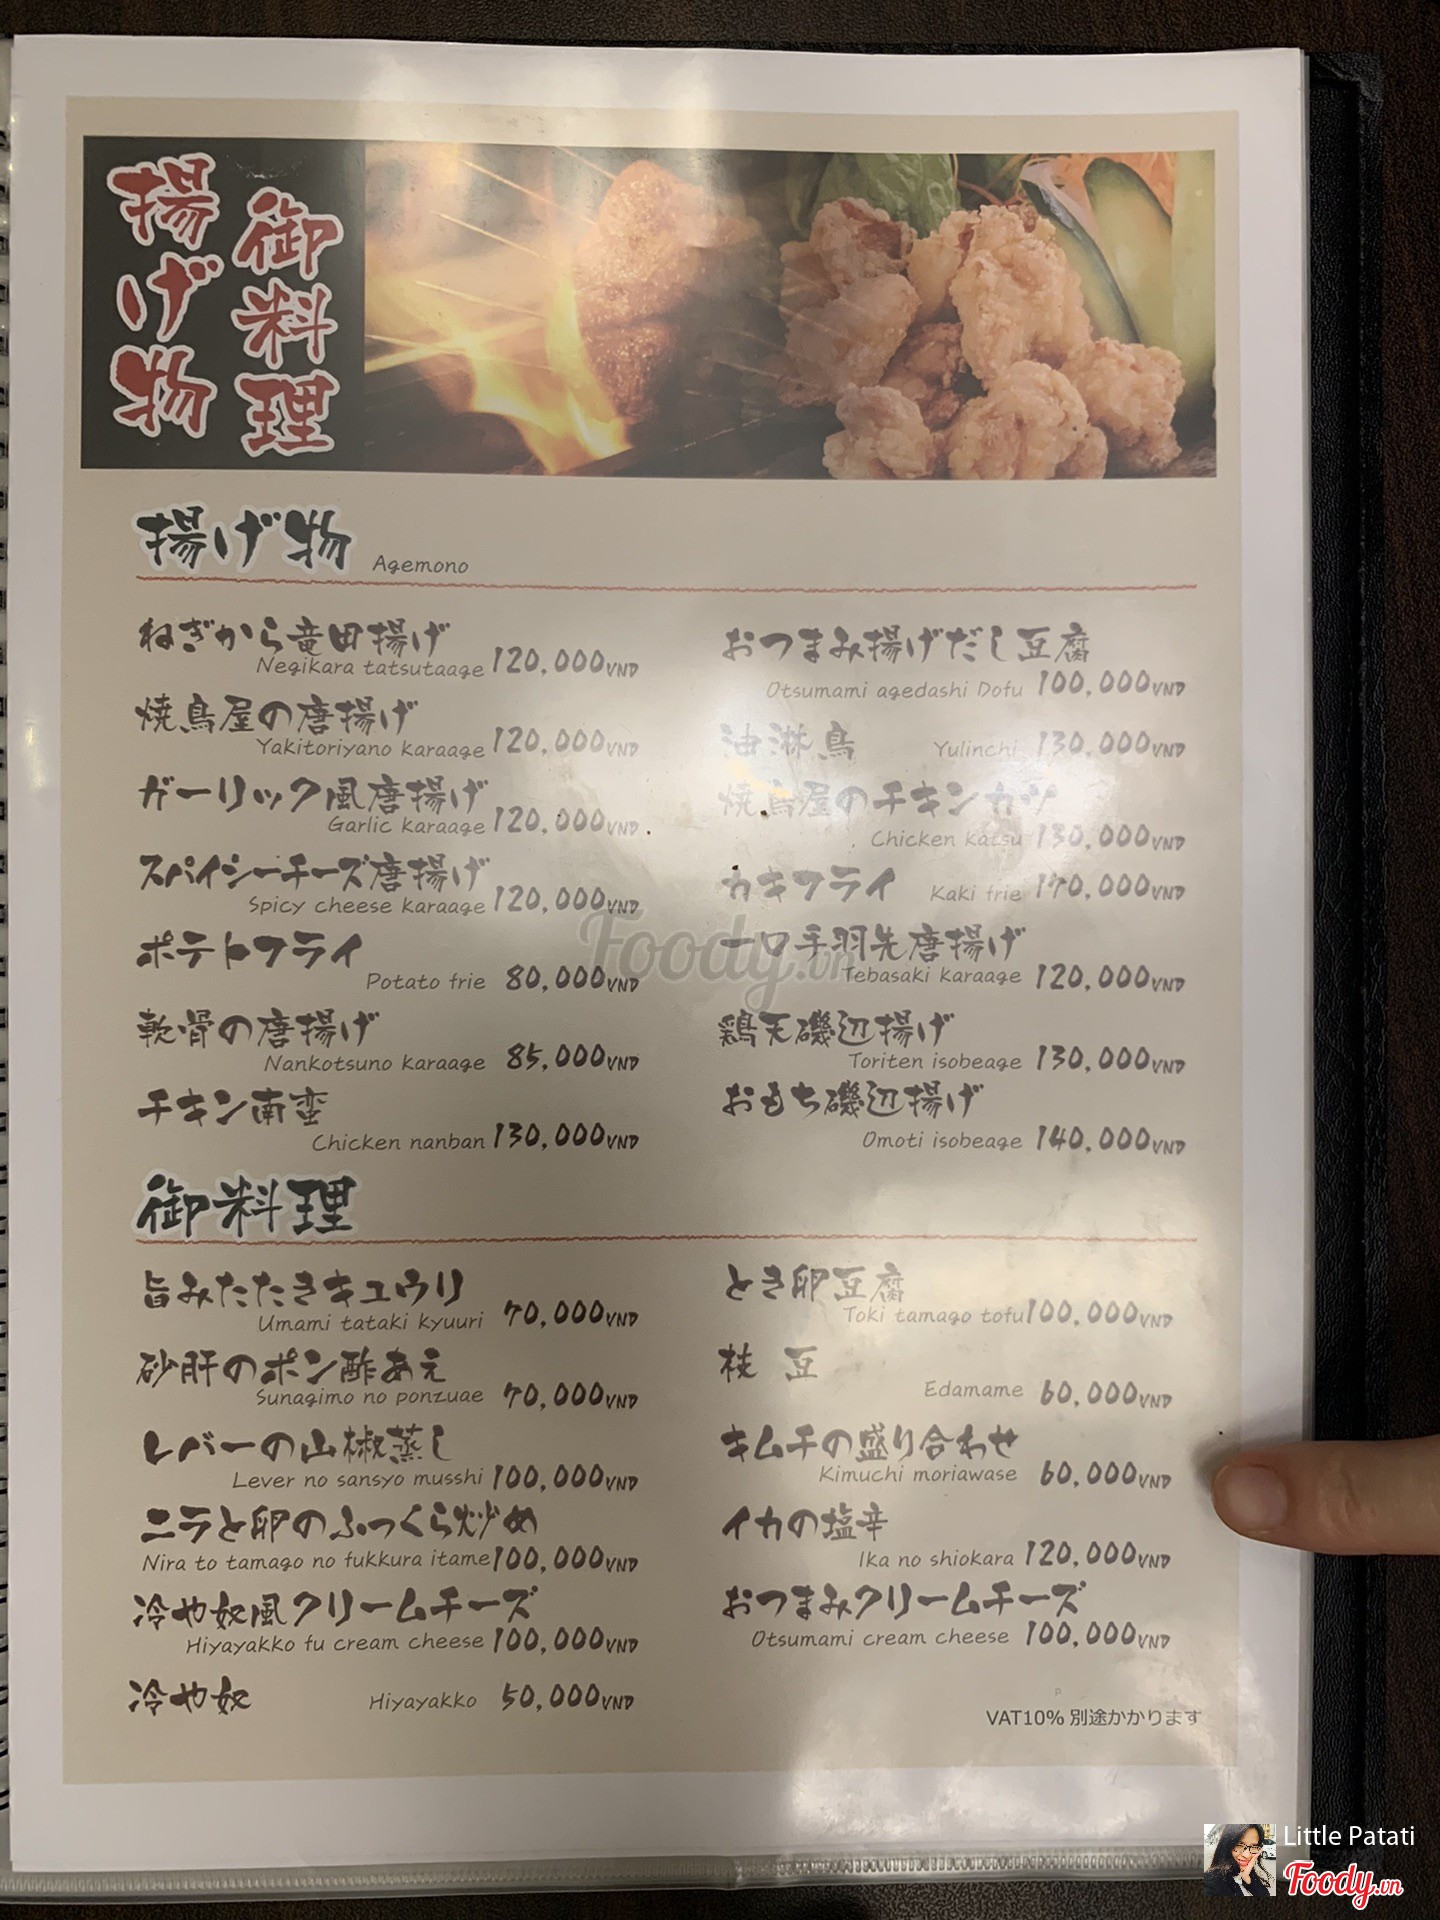 御料理
揚げ物
揚げ物 Agemono
ねぎから竜田揚げ
Negikara tatsutaage 120,000VND
焼鳥屋の唐揚げ
Yakitoriyano karaage 120,000VND
ガーリック風唐揚げ
Garlic karaage 120,000VND
スパイシーチーズ唐揚げ
Spicy cheese karaage 120,000VND
ポテトフライ
Potato frie 80,000VND
軟骨の唐揚げ
Nankotsuno karaage 85,000VND
チキン南蛮
Chicken nanban 130,000VND
おつまみ揚げだし豆腐
Otsumami agedashi Dofu 100,000VND
油淋鳥 Yulinchi 130,000VND
焼鳥屋のチキンカツ
Chicken katsu 130,000VND
カキフライ Kaki frie 170,000VND
一口手羽先唐揚げ
Tebasaki karaage 120,000VND
鶏天磯辺揚げ
Toriten isobeage 130,000VND
おもち磯辺揚げ
Omoti isobeage 140,000VND
御料理
旨みたたきキュウリ
Umami tataki kyuuri 70,000VND
砂肝のポン酢あえ
Sunagimo no ponzuae 70,000VND
レバーの山椒蒸し
Lever no sansyo musshi 100,000VND
ニラと卵のふっくら炒め
Nira to tamago no fukkura itame 100,000VND
冷や奴風クリームチーズ
Hiyayakko fu cream cheese 100,000VND
冷や奴 Hiyayakko 50,000VND
とき卵豆腐
Toki tamago tofu 100,000VND
枝豆
Edamame 60,000VND
キムチの盛り合わせ
Kimuchi moriawase 60,000VND
イカの塩辛
Ika no shiokara 120,000VND
おつまみクリームチーズ
Otsumami cream cheese 100,000VND
VAT10% 別途かかります
Foody.vn
Little Patati
Foody.vn